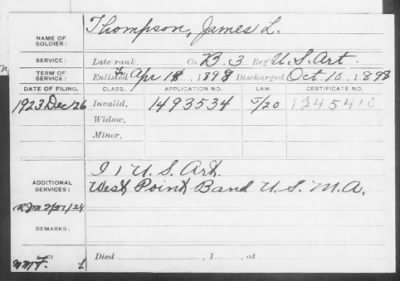 NAME OF SOLDIER: Thompson, James L.
SERVICE: Late rank, Co. B. 3 Reg't U.S. Art.
TERM OF SERVICE: Enlisted Apr 18, 1898 Discharged Oct 10, 1898
DATE OF FILING. CLASS. APPLICATION NO. LAW. CERTIFICATE NO.
1923 Dec 26 Invalid, 1493534 5/20 1245410
Widow,
Minor,
ADDITIONAL SERVICES: I 1 U.S. Art.
West Point Band U.S.M.A.
REMARKS:
Died , 1 , at